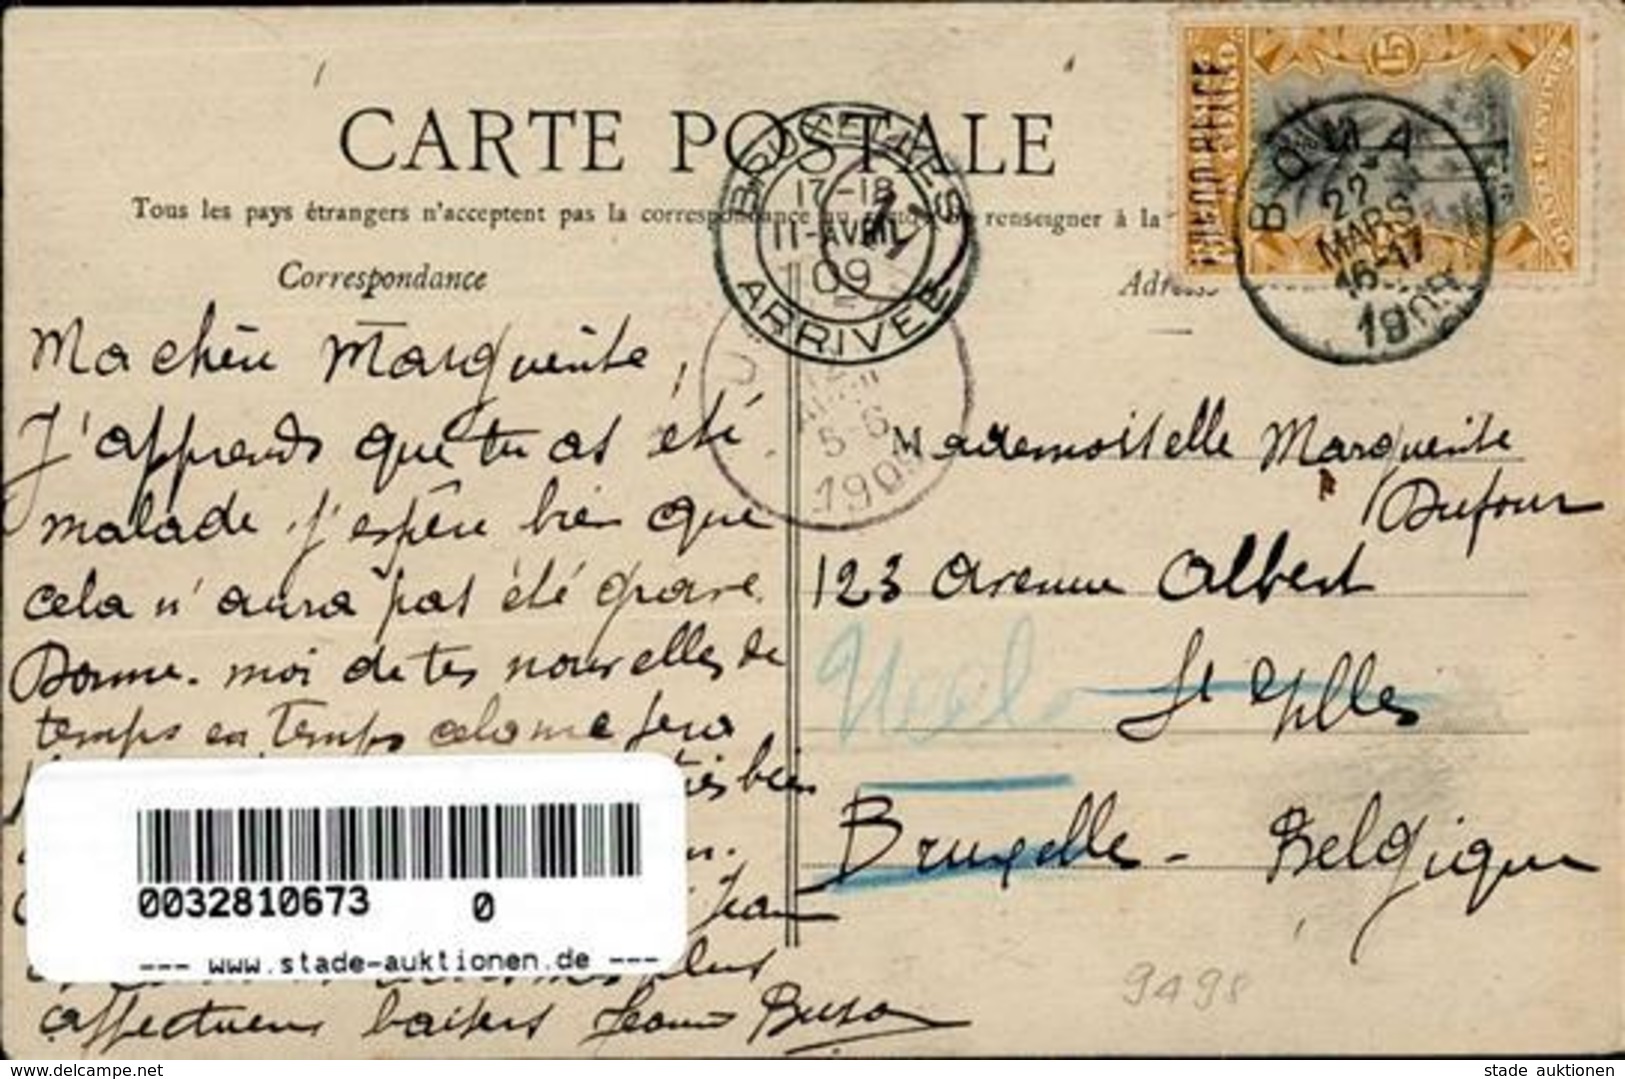 CARTE POSTALE
Tous les pays étrangers n'acceptent pas la correspondance au renseigner à la
Correspondance
Adresse
BRUXELLES
17-18
11-AVRIL
09
ARRIVEE
1
BOMA
22
MARS
16-17
1909
15
5-6
1909
Ma chère Marguerite,
J'apprends que tu as été
malade, j'espère bien que
cela n'aura pas été grave.
Donne-moi de tes nouvelles de
temps en temps cela me fera
très bien
Jean
plus
affectueux baisers
Mademoiselle Marguerite
Dufour
123 avenue Albert
St Gilles
Uccle
Bruxelles - Belgique
9498
0032810673 0
--- www.stade-auktionen.de ---
www.delcampe.net
stade auktionen